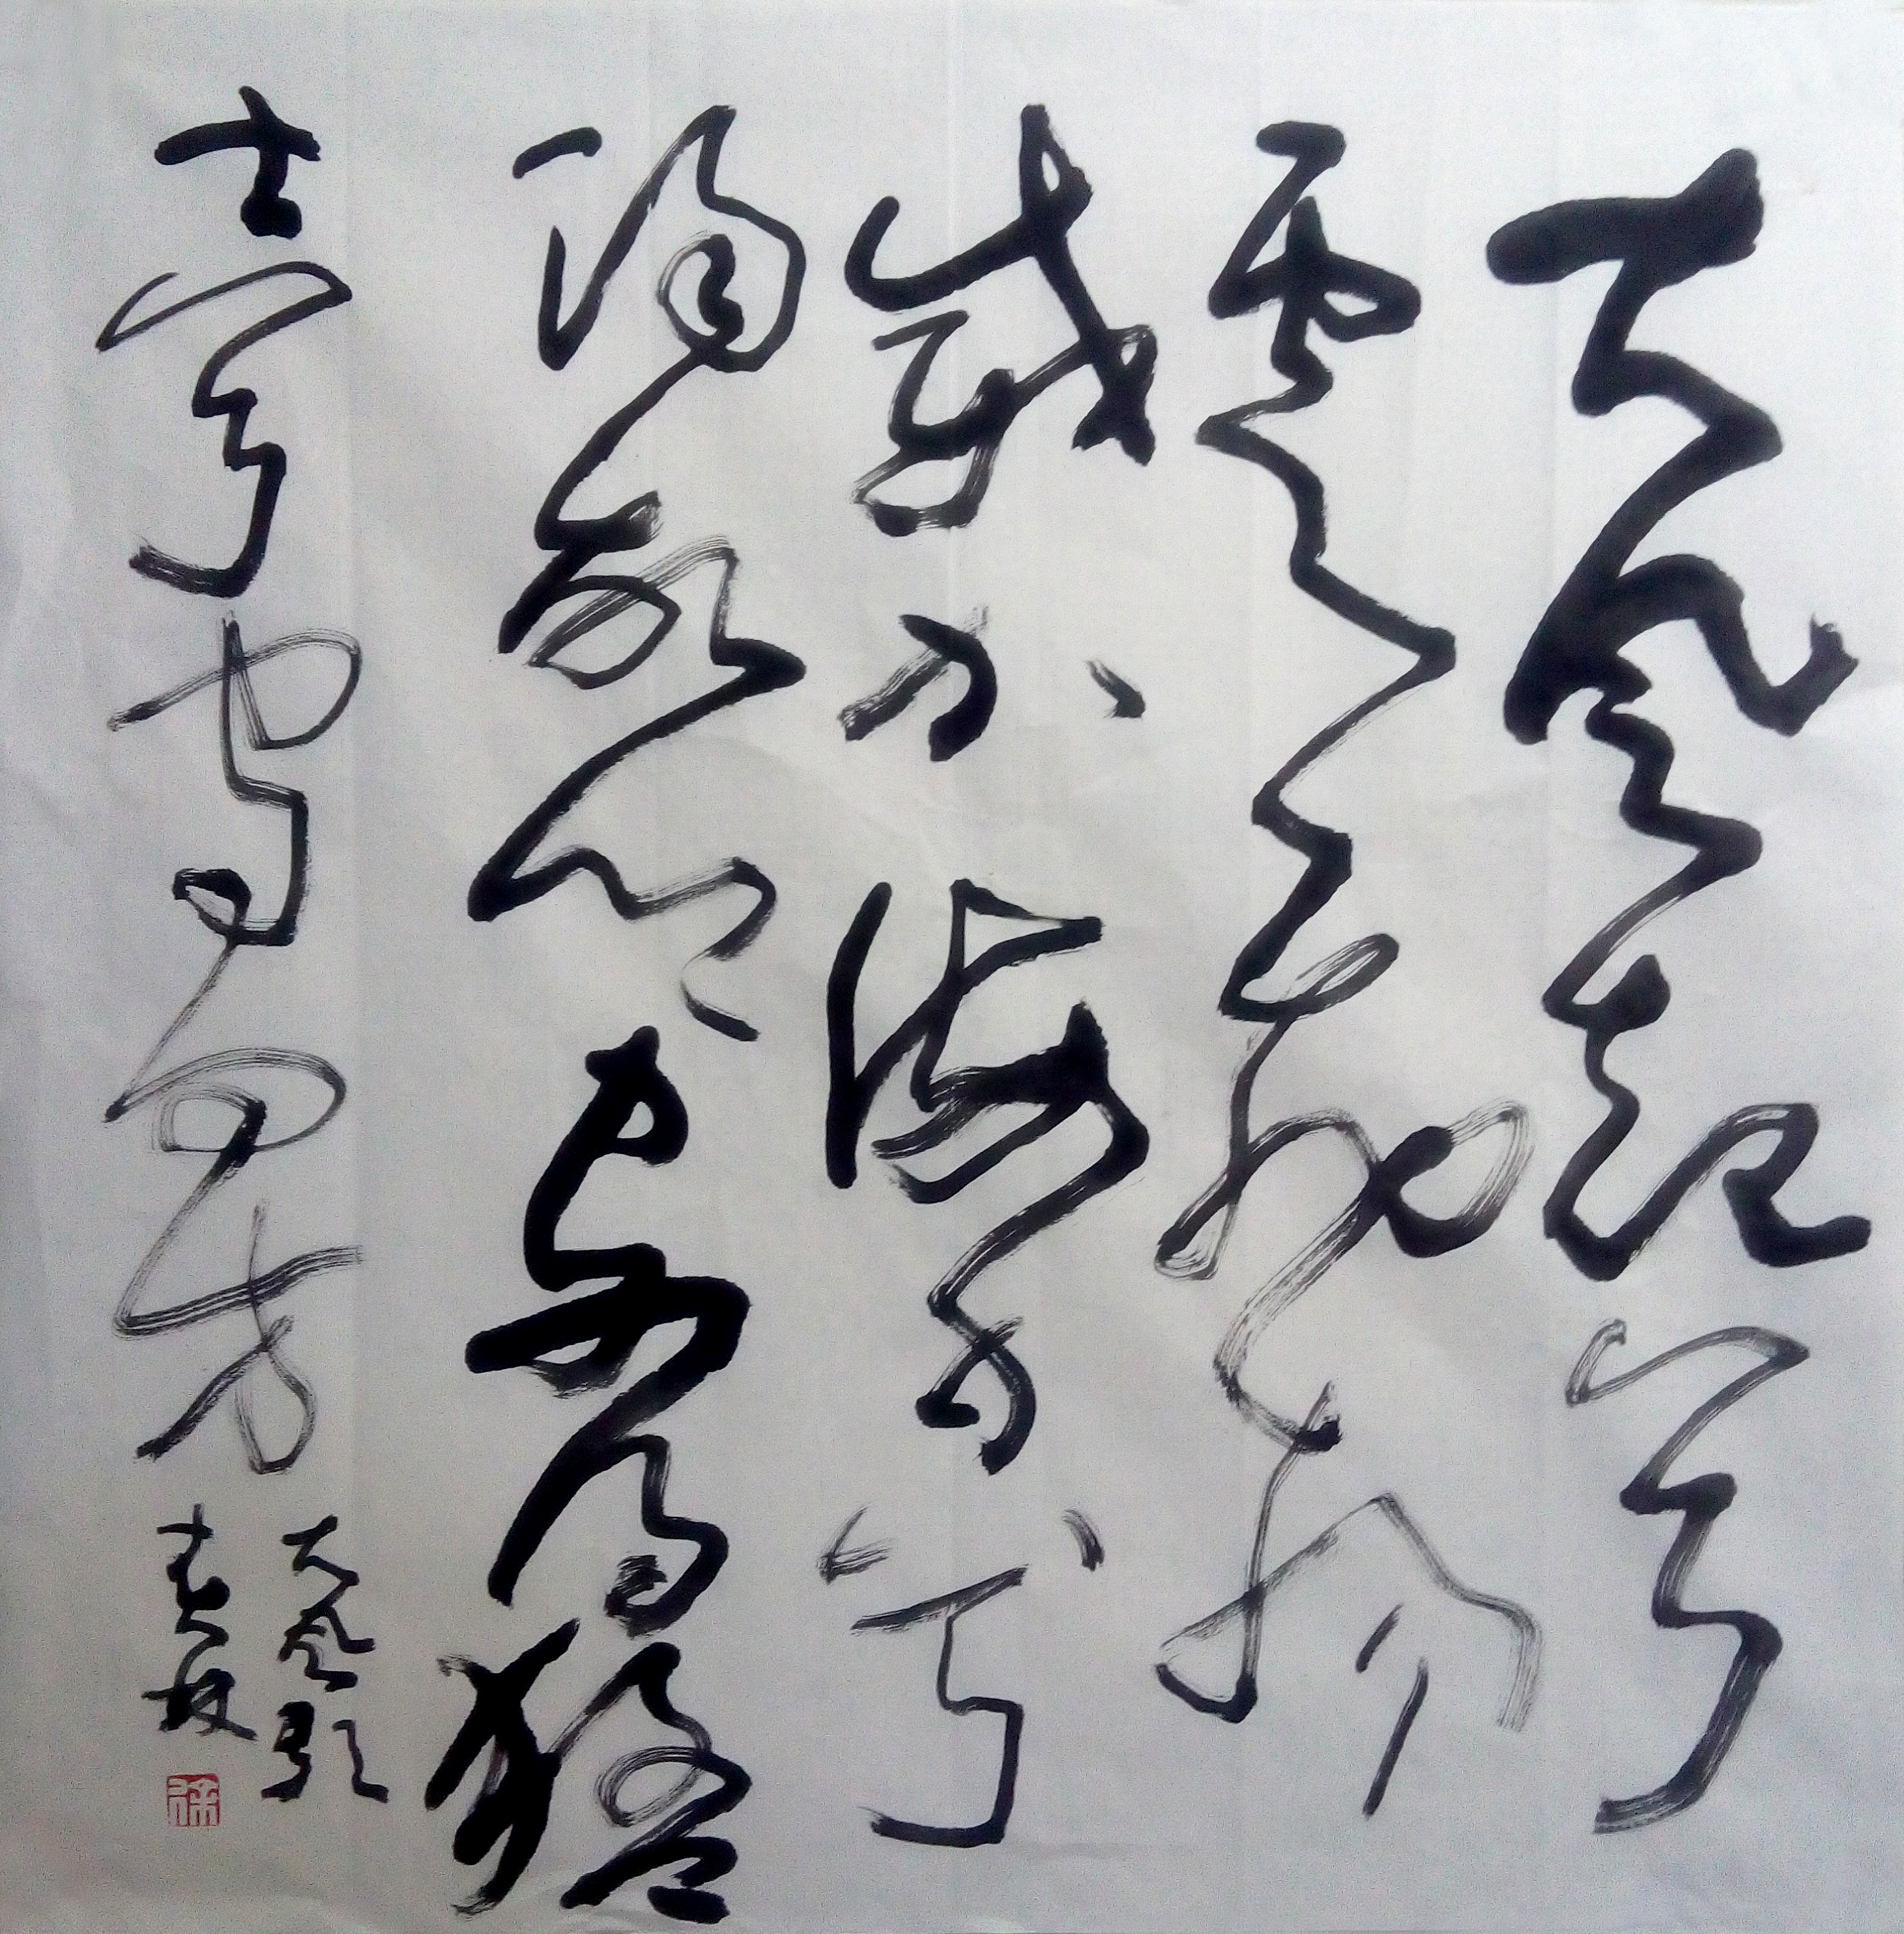 大风起兮
云飞扬
威加海内兮
归故乡安得猛
士兮守四方
大风歌
春林
徐